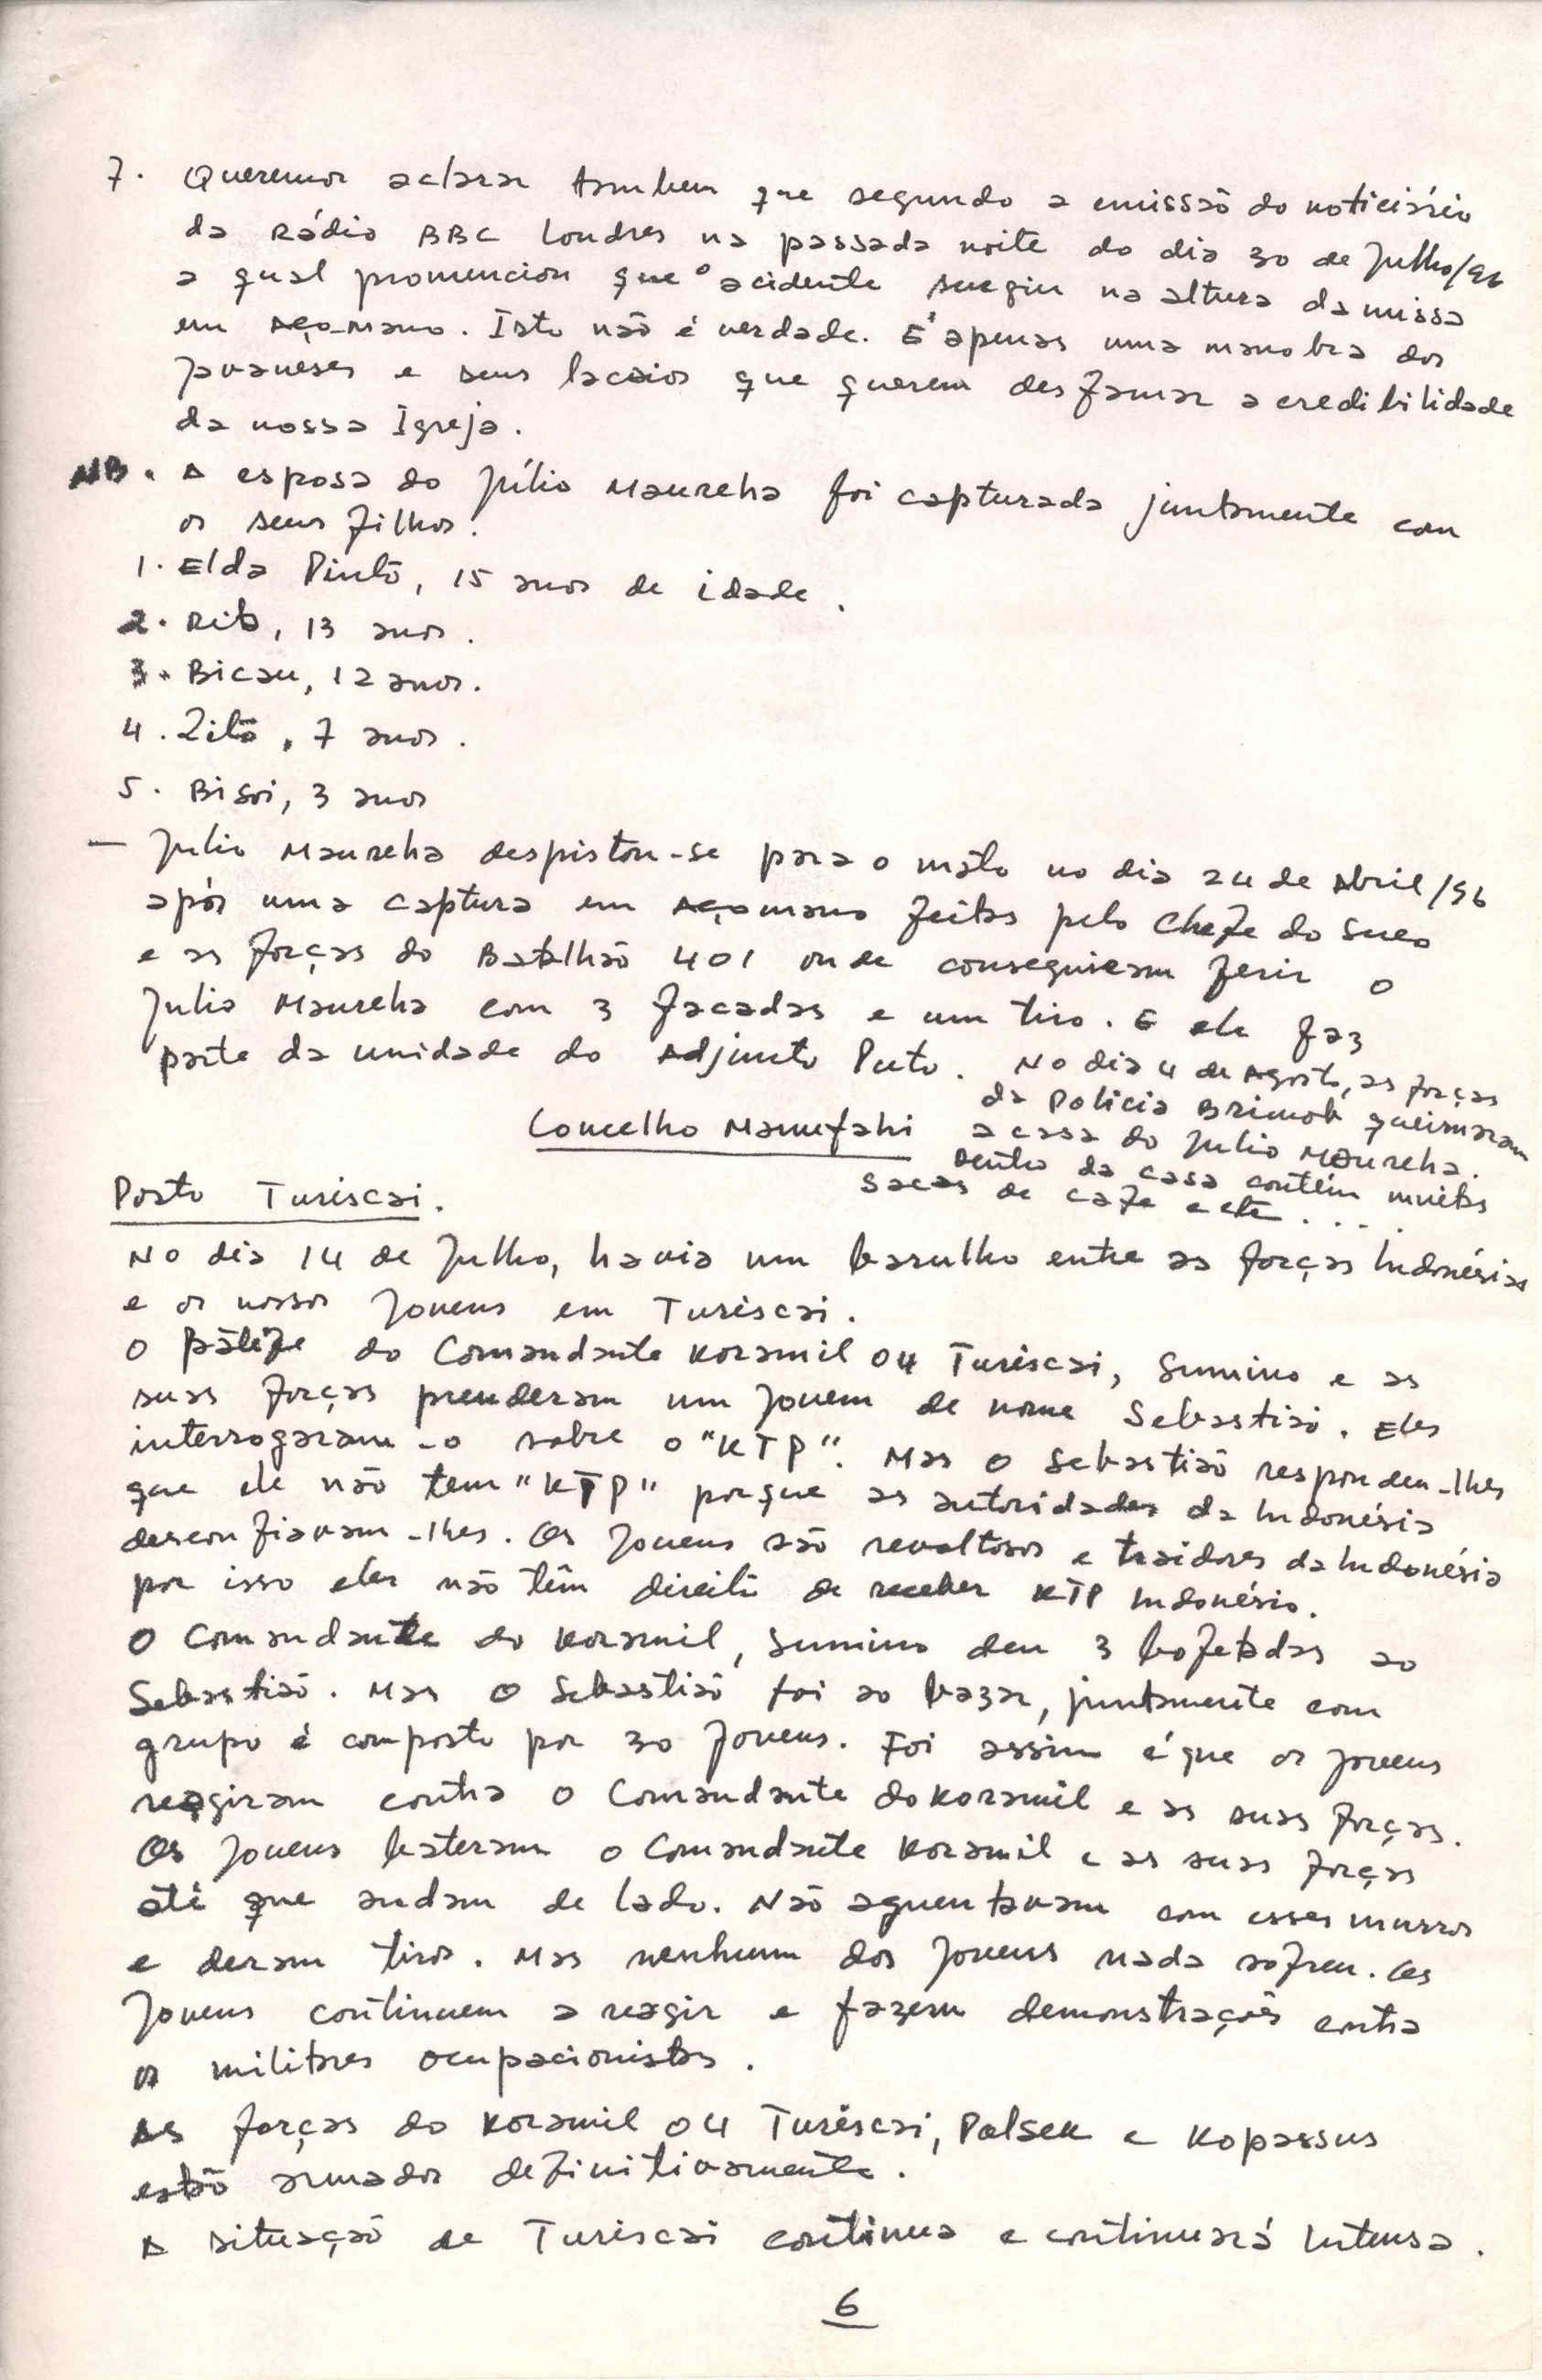 7. Queremos aclarar tambem que segundo a emissão do noticiário
da Rádio BBC Londres na passada noite do dia 30 de Julho/96
a qual promencion que o acidente surgiu na altura da missa
em Açomano. Isto não é verdade. É apenas uma manobra dos
javaneses e seus lacaios que querem desfamar a credibilidade
da nossa Igreja.
NB. A esposa do Júlio Maureha foi capturada juntamente com
os seus filhos:
1. Elda Pinto, 15 anos de idade.
2. Rita, 13 anos.
3. Bicau, 12 anos.
4. Zito, 7 anos.
5. Bisoi, 3 anos
— Julio Maureha despistou-se para o mato no dia 24 de Abril/96
após uma captura em Açomano feitas pelo Chefe do Suco
e as forças do Batalhão 401 onde conseguiram ferir o
Julio Maureha com 3 facadas e um tiro. E ele faz
parte da unidade do Adjunto Puto. No dia 4 de Agosto, as forças
da Policia Brimob queimaram
a casa do Julio Maureha.
Dentro da casa contém muitas
sacas de cafe e etc....
Concelho Manufahi
Posto Turiscai.
No dia 14 de Julho, havia um barulho entre as forças Indonésias
e os nossos jovens em Turiscai.
O pátife do Comandante Koramil 04 Turiscai, Sumino e as
suas forças prenderam um jovem de nome Sebastião. Eles
interrogaram-o sobre o "KTP". Mas o Sebastião respondeu-lhes
que ele não tem "KTP" porque as autoridades da Indonésia
desconfiavam-lhes. Os jovens são revoltosos e traidores da Indonésia
por isso eles não têm direito de receber KTP Indonésio.
O Comandante do Koramil, Sumino deu 3 bofetadas ao
Sebastião. Mas o Sebastião foi ao bazar, juntamente com
grupo é composto por 30 jovens. Foi assim é que os jovens
reagiram contra o Comandante do Koramil e as suas forças.
Os jovens bateram o Comandante Koramil e as suas forças
até que andam de lado. Não aguentavam com esses murros
e deram tiros. Mas nenhum dos jovens nada sofreu. Os
jovens continuem a reagir e fazem demonstrações contra
os militares ocupacionistas.
As forças do Koramil 04 Turiscai, Polsek e Kopassus
estão armados definitivamente.
A situação de Turiscai continua e continuará intensa.
6